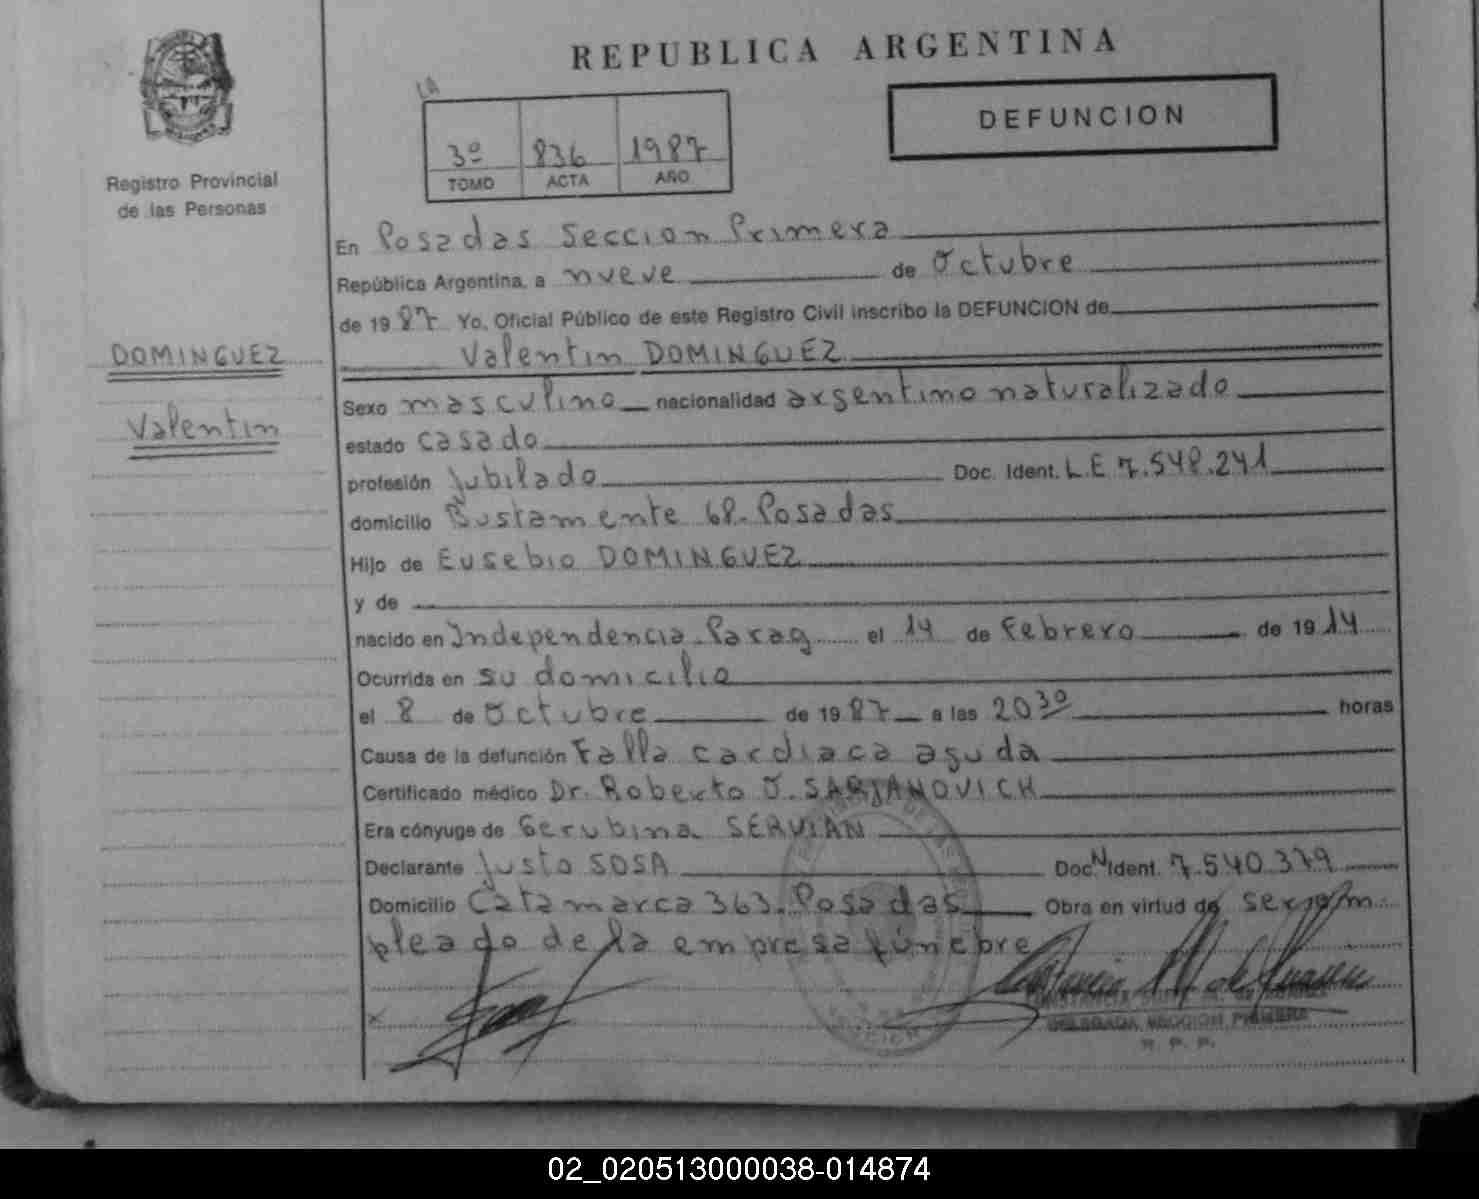 REPUBLICA ARGENTINA
DEFUNCION
LA
3º 836 1987
TOMO ACTA AÑO
Registro Provincial
de las Personas
DOMINGUEZ
Valentin
En Posadas Seccion Primera
República Argentina, a nueve de Octubre
de 1987 Yo, Oficial Público de este Registro Civil inscribo la DEFUNCION de
Valentin DOMINGUEZ
Sexo masculino nacionalidad argentino naturalizado
estado casado
profesión Jubilado Doc. Ident. L.E 7.548.241
domicilio Bustamente 68. Posadas
Hijo de Eusebio DOMINGUEZ
y de
nacido en Independencia. Parag el 14 de Febrero de 1914
Ocurrida en su domicilio
el 8 de Octubre de 1987 a las 20 30 horas
Causa de la defunción Falla cardiaca aguda
Certificado médico Dr. Roberto J. SARJANOVICH
Era cónyuge de Gerubina SERVIAN
Declarante Justo SOSA Doc. N Ident. 7.540.379
Domicilio Catamarca 363. Posadas Obra en virtud de ser em
pleado de la empresa fúnebre
DELEGADA SECCION PRIMERA
R. P. P.
02_020513000038-014874